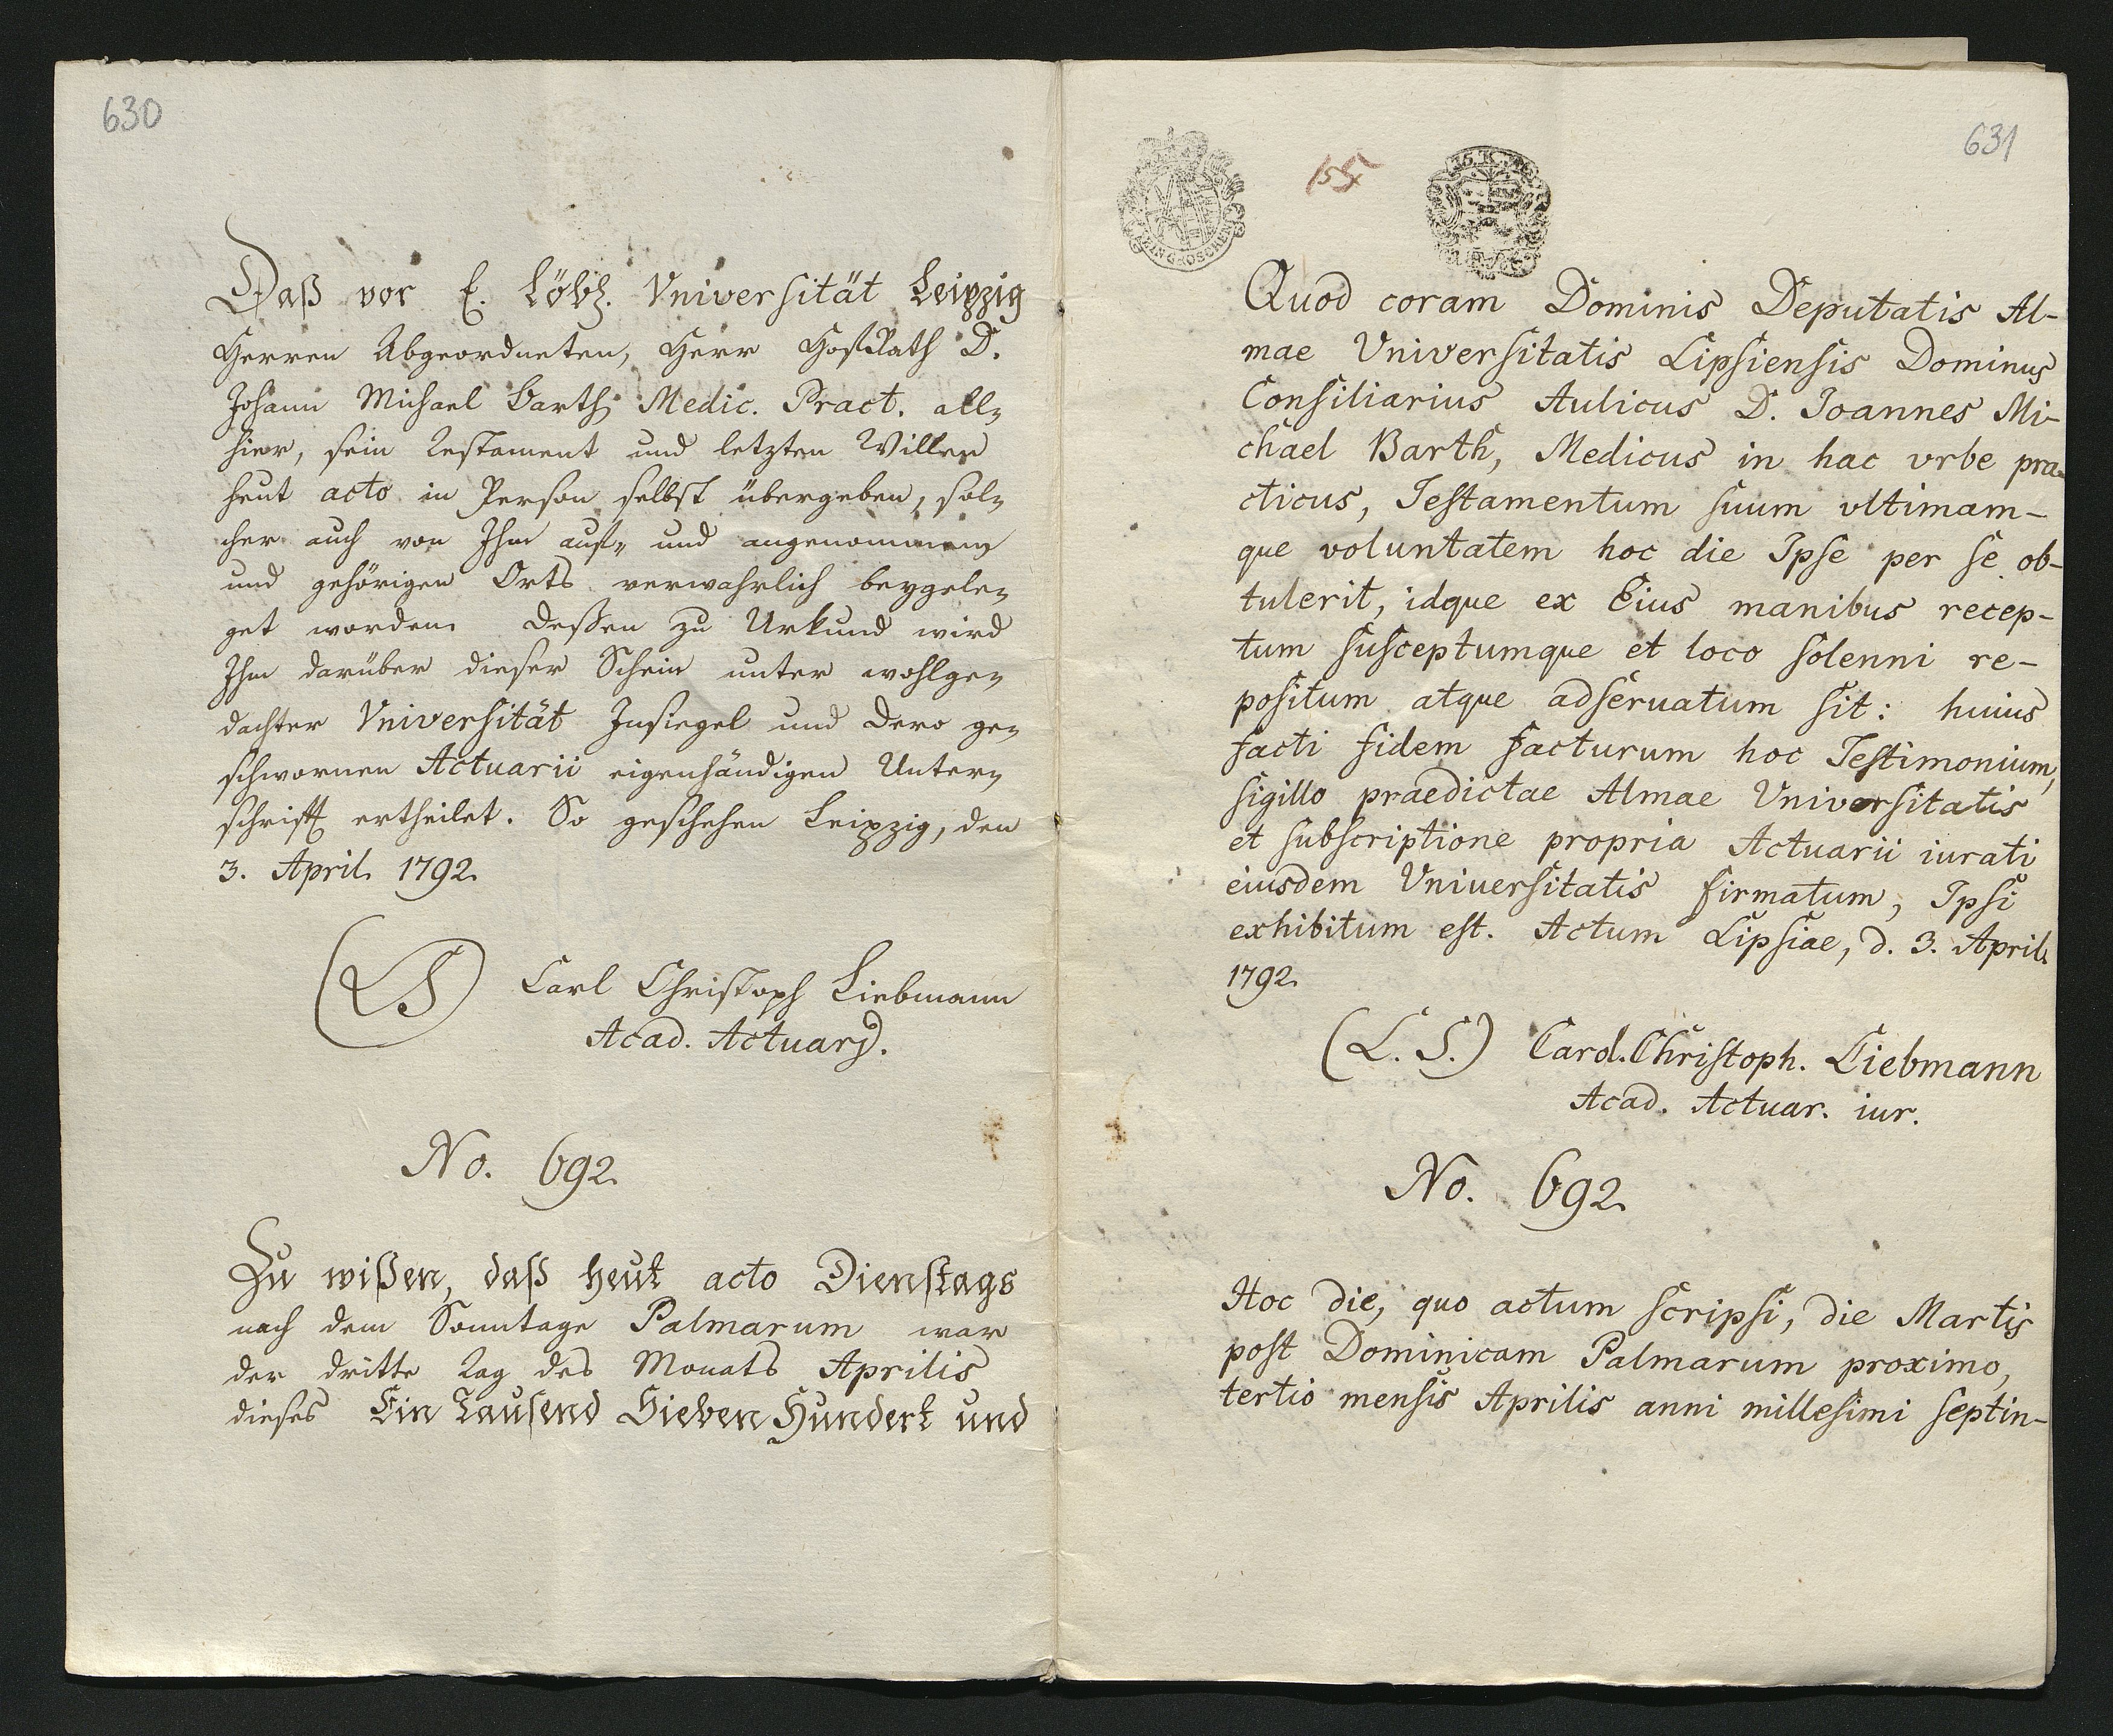 630
Daß vor E. Löbl. Vniversität Leipzig
Herren Abgeordneten, Herr HofRath D.
Johann Michael Barth, Medic. Pract. all-
hier, sein Testament und letzten Willen
heut acto in Person selbst übergeben, sol-
cher auch von Ihm auf- und angenommen
und gehörigen Orts verwahrlich beygele-
get worden. Deßen zu Urkund wird
Ihm darüber dieser Schein unter wohlge-
dachter Vniversität Insiegel und dero ge-
schwornen Actuarii eigenhändigen Unter-
schrifft ertheilet. So geschehen Leipzig, den
3. April. 1792.
(LS) Carl Christoph Liebmann
Acad. Actuar.
No. 692.
Zu wißen, daß heut acto Dienstags
nach dem Sonntage Palmarum war
der dritte Tag des Monats Aprilis
dieses Ein Tausend Sieben Hundert und
631
Quod coram Dominis Deputatis Al-
mae Vniversitatis Lipsiensis Dominus
Consiliarius Aulicus D. Joannes Mi-
chael Barth, Medicus in hac vrbe pra-
cticus, Testamentum suum vltimam-
que voluntatem hoc die Ipse per se ob-
tulerit, idque ex Eius manibus recep-
tum susceptumque et loco solenni re-
positum atque adseruatum sit: huius
facti fidem facturum hoc Testimonium,
sigillo praedictae Almae Vniversitatis
et subscriptione propria Actuarii iurati
eiusdem Vniuersitatis firmatum, Ipsi
exhibitum est. Actum Lipsiae, d. 3. April.
1792.
(L. S.) Carol. Christoph. Liebmann
Acad. Actuar. iur.
No. 692.
Hoc die, quo actum scripsi, die Martis
post Dominicam Palmarum proximo,
tertio mensis Aprilis anni millesimi septin-